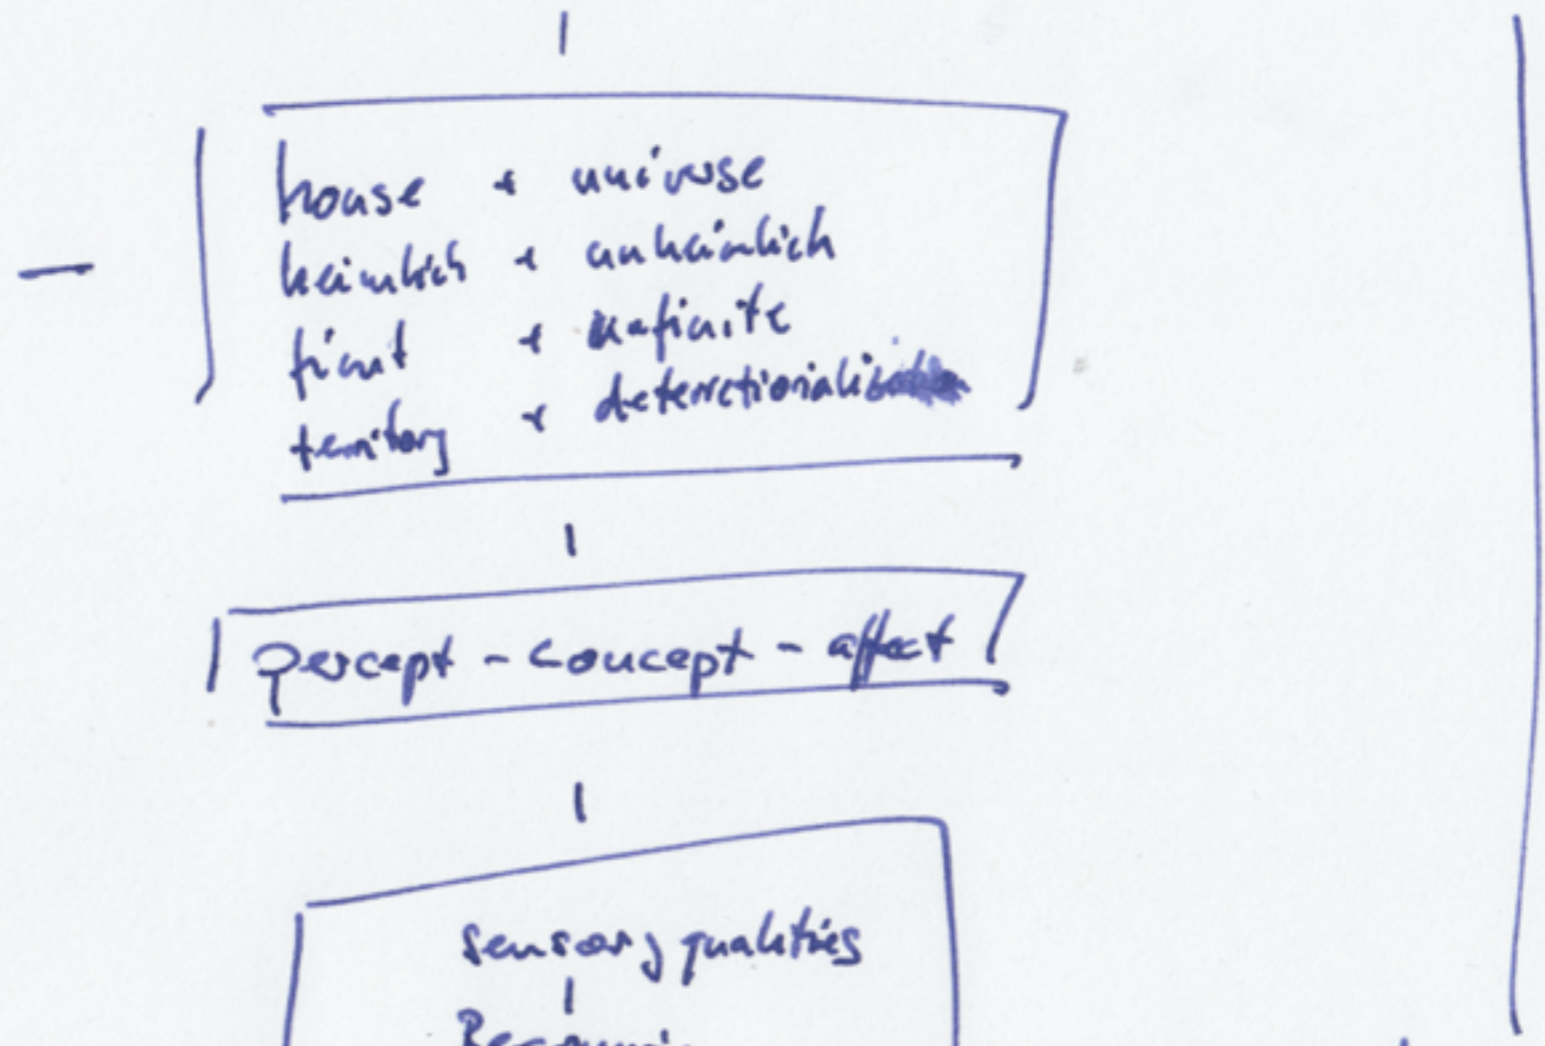 house + universe
heimlich + unheimlich
finit + infinite
territory +
percept - concept - affect
sensory qualities